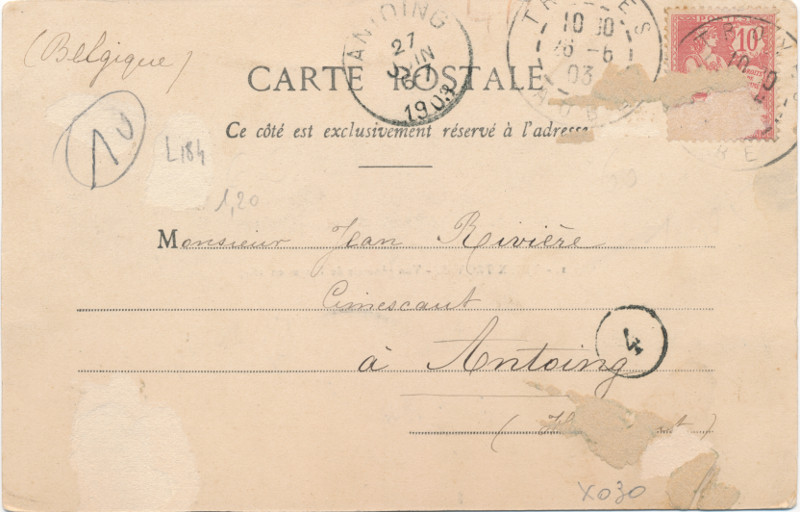 (Belgique)
ANTOING
27
JUIN
1903
10
26-6
03
POSTES
10
CARTE POSTALE
Ce côté est exclusivement réservé à l'adresse
10
L184
1,20
Monsieur Jean Rivière
à Antoing
4
X030